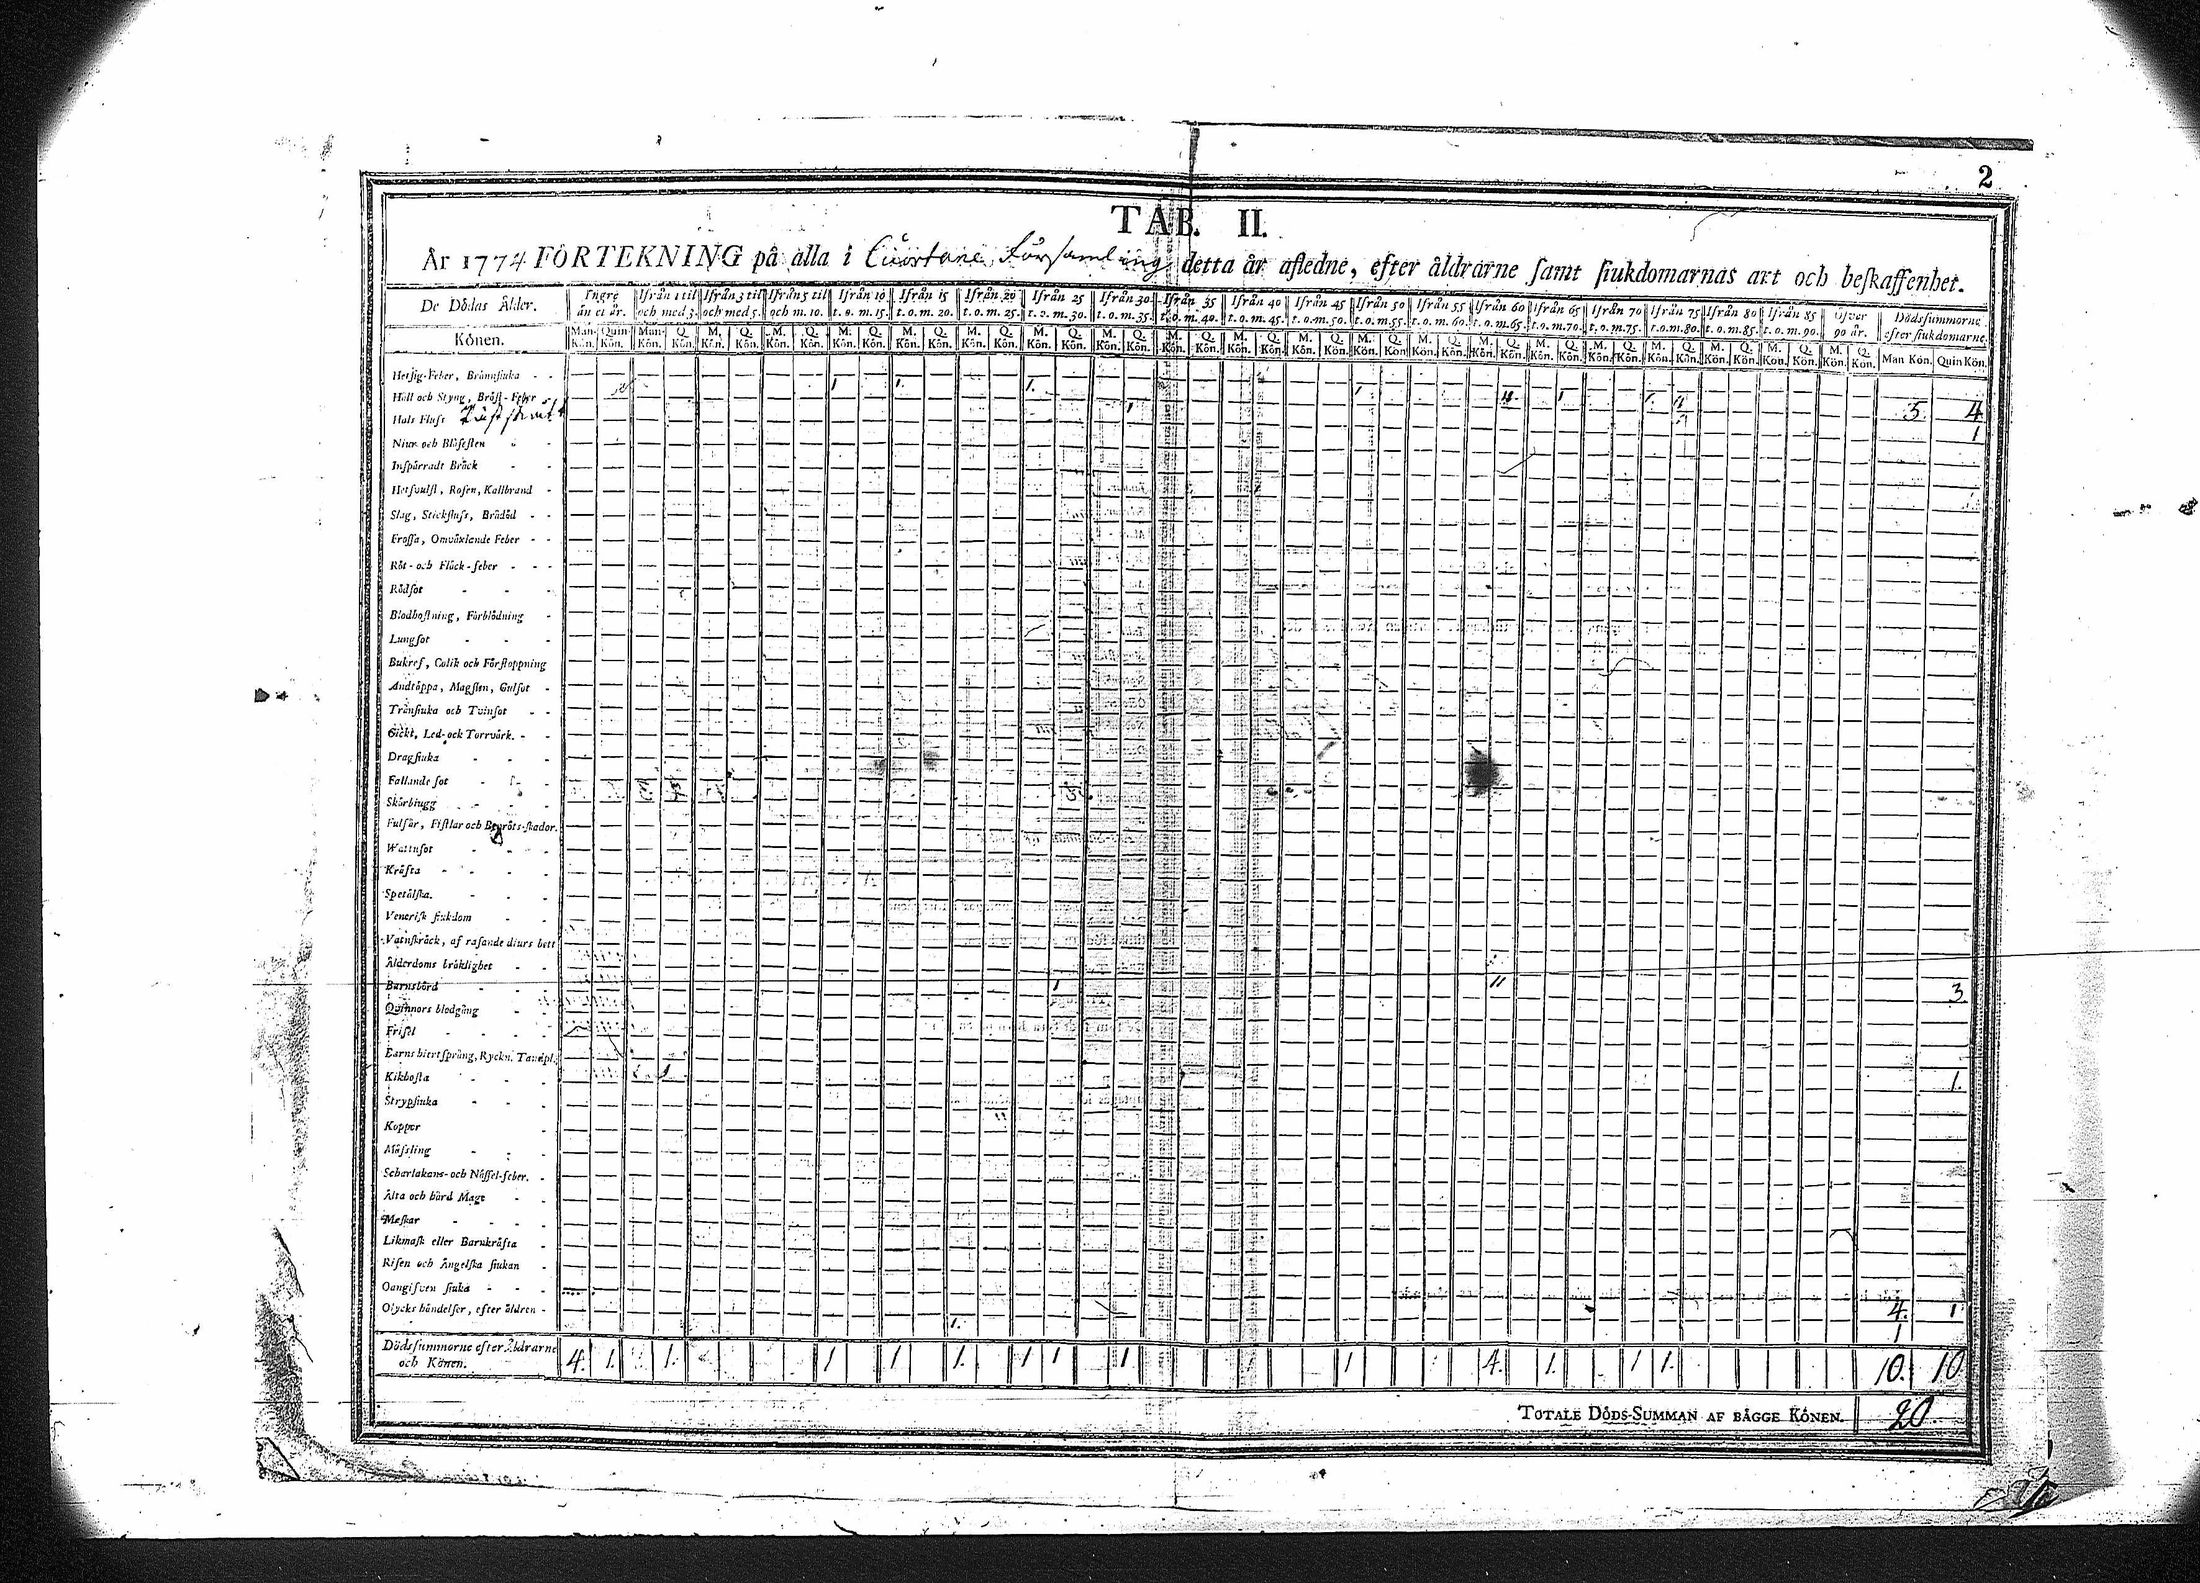 2
TAB. II.
År 1774 FÖRTEKNING på alla i Cuortane Församling detta år afledne, efter åldrarne samt siukdomarnas art och beskaffenhet.
De Dödas Ålder. Yngre än et år. Ifrån 1 til och med 3. Ifrån 3 til och med 5. Ifrån 5 til och m. 10. Ifrån 10 t. o. m. 15. Ifrån 15 t. o. m. 20. Ifrån 20 t. o. m. 25. Ifrån 25 t. o. m. 30. Ifrån 30 t. o. m. 35. Ifrån 35 t. o. m. 40. Ifrån 40 t. o. m. 45. Ifrån 45 t. o. m. 50. Ifrån 50 t. o. m. 55. Ifrån 55 t. o. m. 60. Ifrån 60 t. o. m. 65. Ifrån 65 t. o. m. 70. Ifrån 70 t. o. m. 75. Ifrån 75 t. o. m. 80. Ifrån 80 t. o. m. 85. Ifrån 85 t. o. m. 90. Öfver 90 år. Dödssummorne efter siukdomarne.
Könen. Man-Kön. Quin-Kön. Man-Kön. Q. Kön. M. Kön. Q. Kön. M. Kön. Q. Kön. M. Kön. Q. Kön. M. Kön. Q. Kön. M. Kön. Q. Kön. M. Kön. Q. Kön. M. Kön. Q. Kön. M. Kön. Q. Kön. M. Kön. Q. Kön. M. Kön. Q. Kön. M. Kön. Q. Kön. M. Kön. Q. Kön. M. Kön. Q. Kön. M. Kön. Q. Kön. M. Kön. Q. Kön. M. Kön. Q. Kön. M. Kön. Q. Kön. M. Kön. Q. Kön. M. Kön. Q. Kön. Man Kön. Quin Kön.
Hetsig-Feber, Brännsiuka
Håll och Styng, Bröst-Feber 1 1. 1. 1 11. 1 1. 5. 4
Hals Fluss 1 1
Niur- och Blåsesten
Inspärradt Bråck
Hetsvulst, Rosen, Kallbrand
Slag, Stickfluss, Brådöd
Frossa, Omväxlande Feber
Röt- och Fläck-feber
Rödsot
Blodhostning, Förblödning
Lungsot
Bukref, Colik och Förstoppning
Andtäppa, Magsten, Gulsot
Trånsiuka och Tvinsot
Gickt, Led- och Torrvärk.
Dragsiuka
Fallande sot
Skörbiugg
Fulsår, Fistlar och Benröts-skador.
Wattusot
Kräfta
Spetälska.
Venerisk siukdom
Vatnskräck, af rasande diurs bett
Ålderdoms bräklighet
Barnsbörd 1 11 3
Quinnors blodgång
Frisel
Barns hiertsprång, Ryckn. Tandpl.
Kikhosta 1 1.
Strypsiuka
Koppor
Mässling
Scharlakans- och Nässel-feber.
Älta och hård Mage
Maskar
Likmask eller Barnkräfta
Risen och Ängelska siukan
Oangifven siuka 4. 1
Olycks händelser, efter åldren 1. 1
Dödssummorne efter Åldrarne och Könen. 4. 1. 1. 1 1 1. 1 1 1 1 4. 1. 1 1. 10. 10
TOTALE DÖDS-SUMMAN AF BÄGGE KÖNEN. 20.